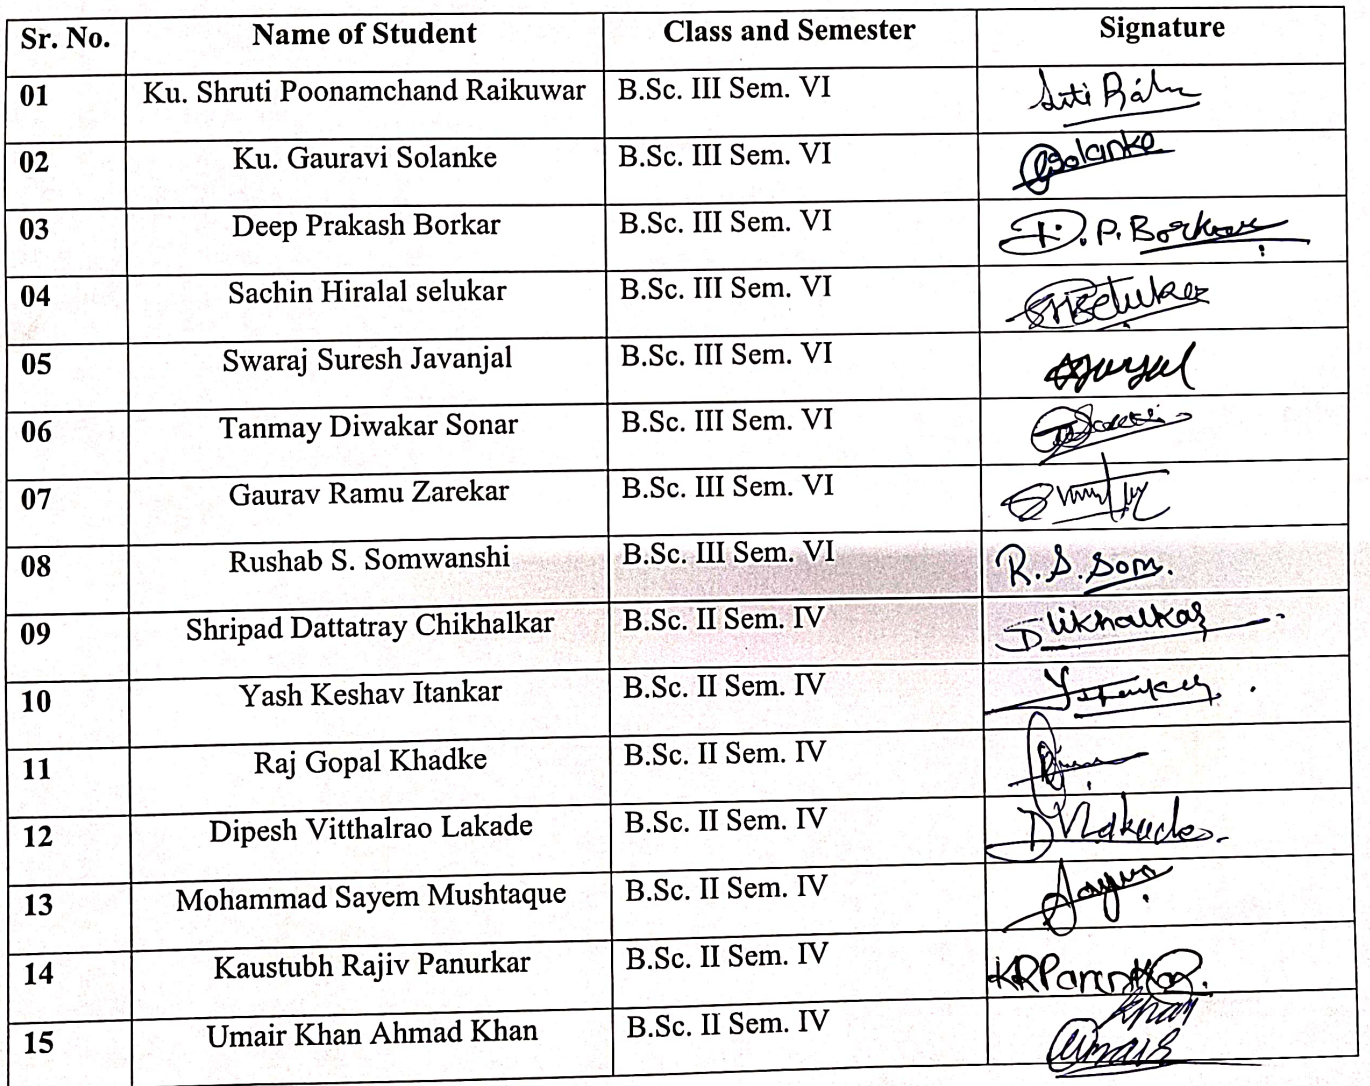 Sr. No. Name of Student Class and Semester Signature
01 Ku. Shruti Poonamchand Raikuwar B.Sc. III Sem. VI
02 Ku. Gauravi Solanke B.Sc. III Sem. VI GSolanke
03 Deep Prakash Borkar B.Sc. III Sem. VI D.P. Borkar
04 Sachin Hiralal selukar B.Sc. III Sem. VI
05 Swaraj Suresh Javanjal B.Sc. III Sem. VI
06 Tanmay Diwakar Sonar B.Sc. III Sem. VI
07 Gaurav Ramu Zarekar B.Sc. III Sem. VI
08 Rushab S. Somwanshi B.Sc. III Sem. VI R.S.Som.
09 Shripad Dattatray Chikhalkar B.Sc. II Sem. IV
10 Yash Keshav Itankar B.Sc. II Sem. IV
11 Raj Gopal Khadke B.Sc. II Sem. IV
12 Dipesh Vitthalrao Lakade B.Sc. II Sem. IV
13 Mohammad Sayem Mushtaque B.Sc. II Sem. IV
14 Kaustubh Rajiv Panurkar B.Sc. II Sem. IV
15 Umair Khan Ahmad Khan B.Sc. II Sem. IV Khan
Umair